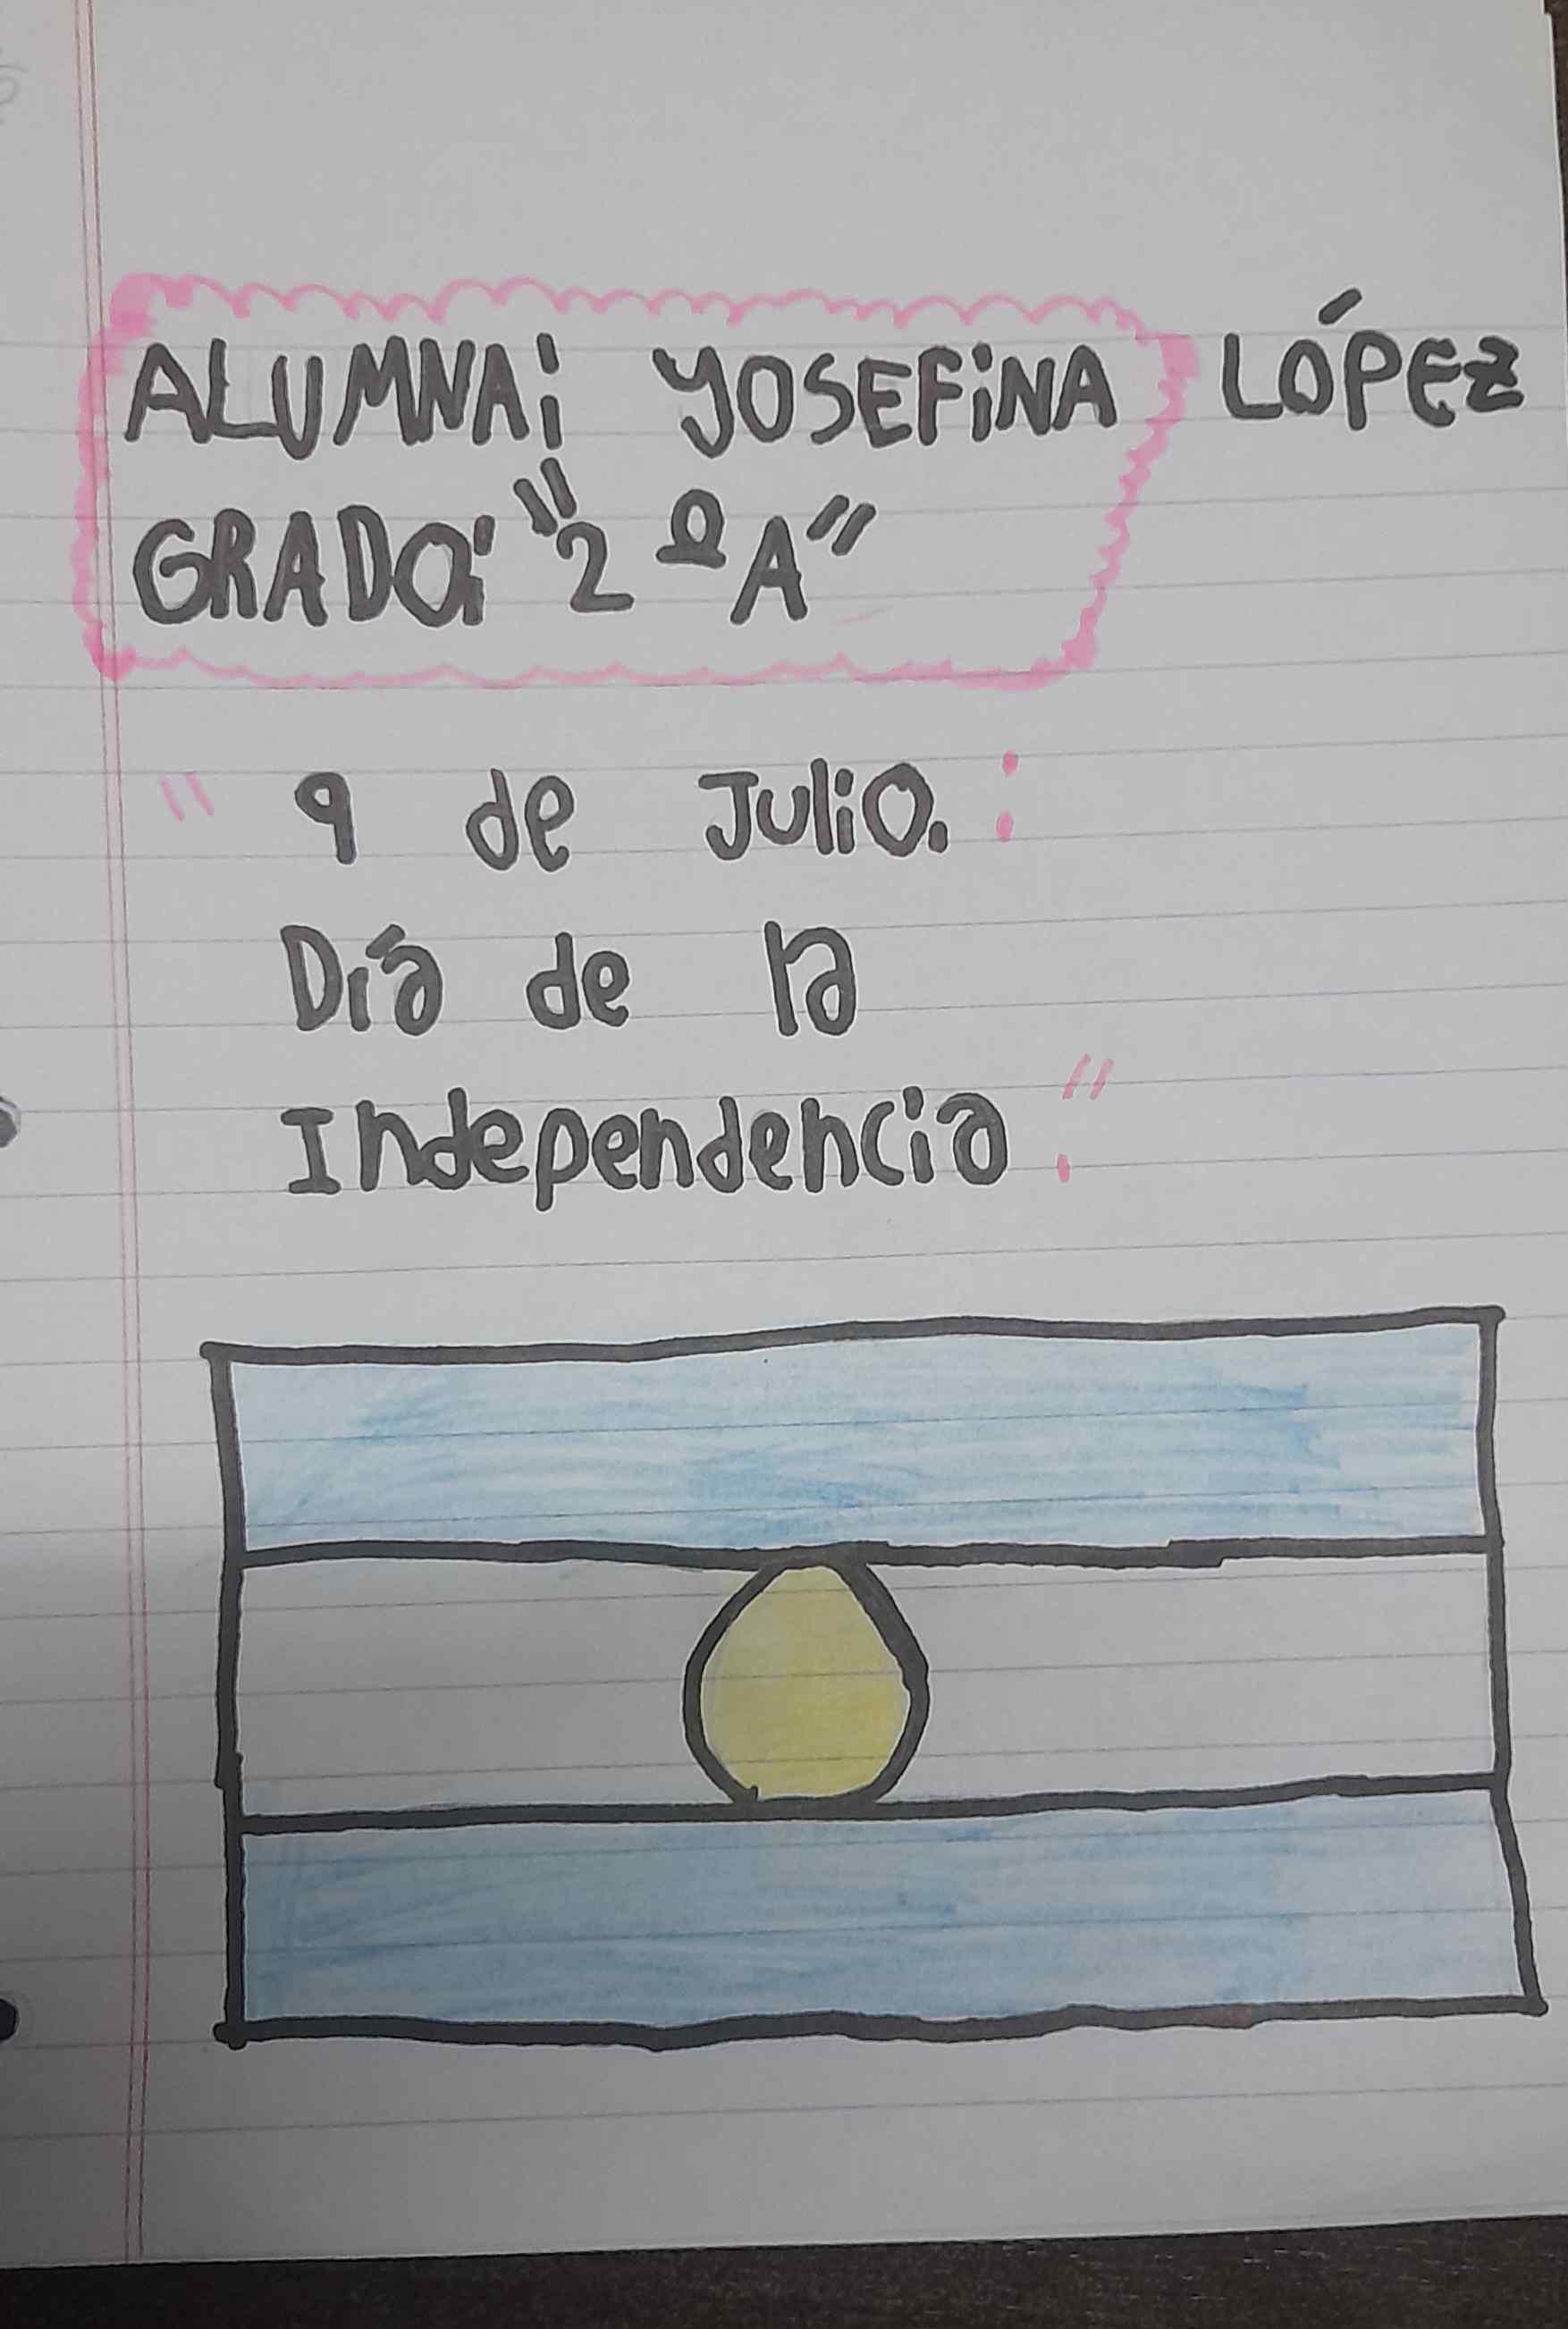 ALUMNA: YOSEFINA LÓPEZ
GRADO: "2 º A"
" 9 de Julio. :
Día de la
Independencia ."